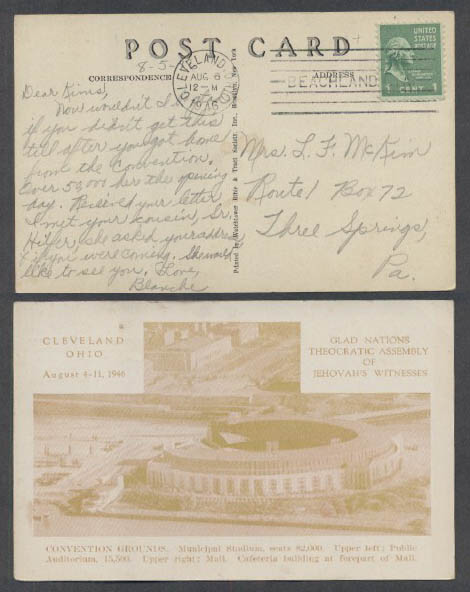 POST CARD
8-5-
CORRESPONDENCE
ADDRESS
CLEVELAND
AUG 6
12-M
1946
OHIO
BEACHLAND
UNITED STATES POSTAGE
1 CENT 1
Dear Kims,
Now wouldn't
if you didn't get this
till after you got home
from the Convention.
Over 50,000 her the opening
day. Received your letter
I met your cousin, Sr.
she asked your address
& if you were coming. She would
like to see you. Love,
Blanche
Mrs. L. F. McKim
Route 1 Box 72
Three Springs,
Pa.
Printed by Watchtower Bible & Tract Society, Inc., Brooklyn, New York
CLEVELAND
OHIO
August 4-11, 1946
GLAD NATIONS
THEOCRATIC ASSEMBLY
OF
JEHOVAH'S WITNESSES
CONVENTION GROUNDS. Municipal Stadium, seats 82,000. Upper left: Public
Auditorium, 15,500. Upper right: Mall. Cafeteria building at forepart of Mall.